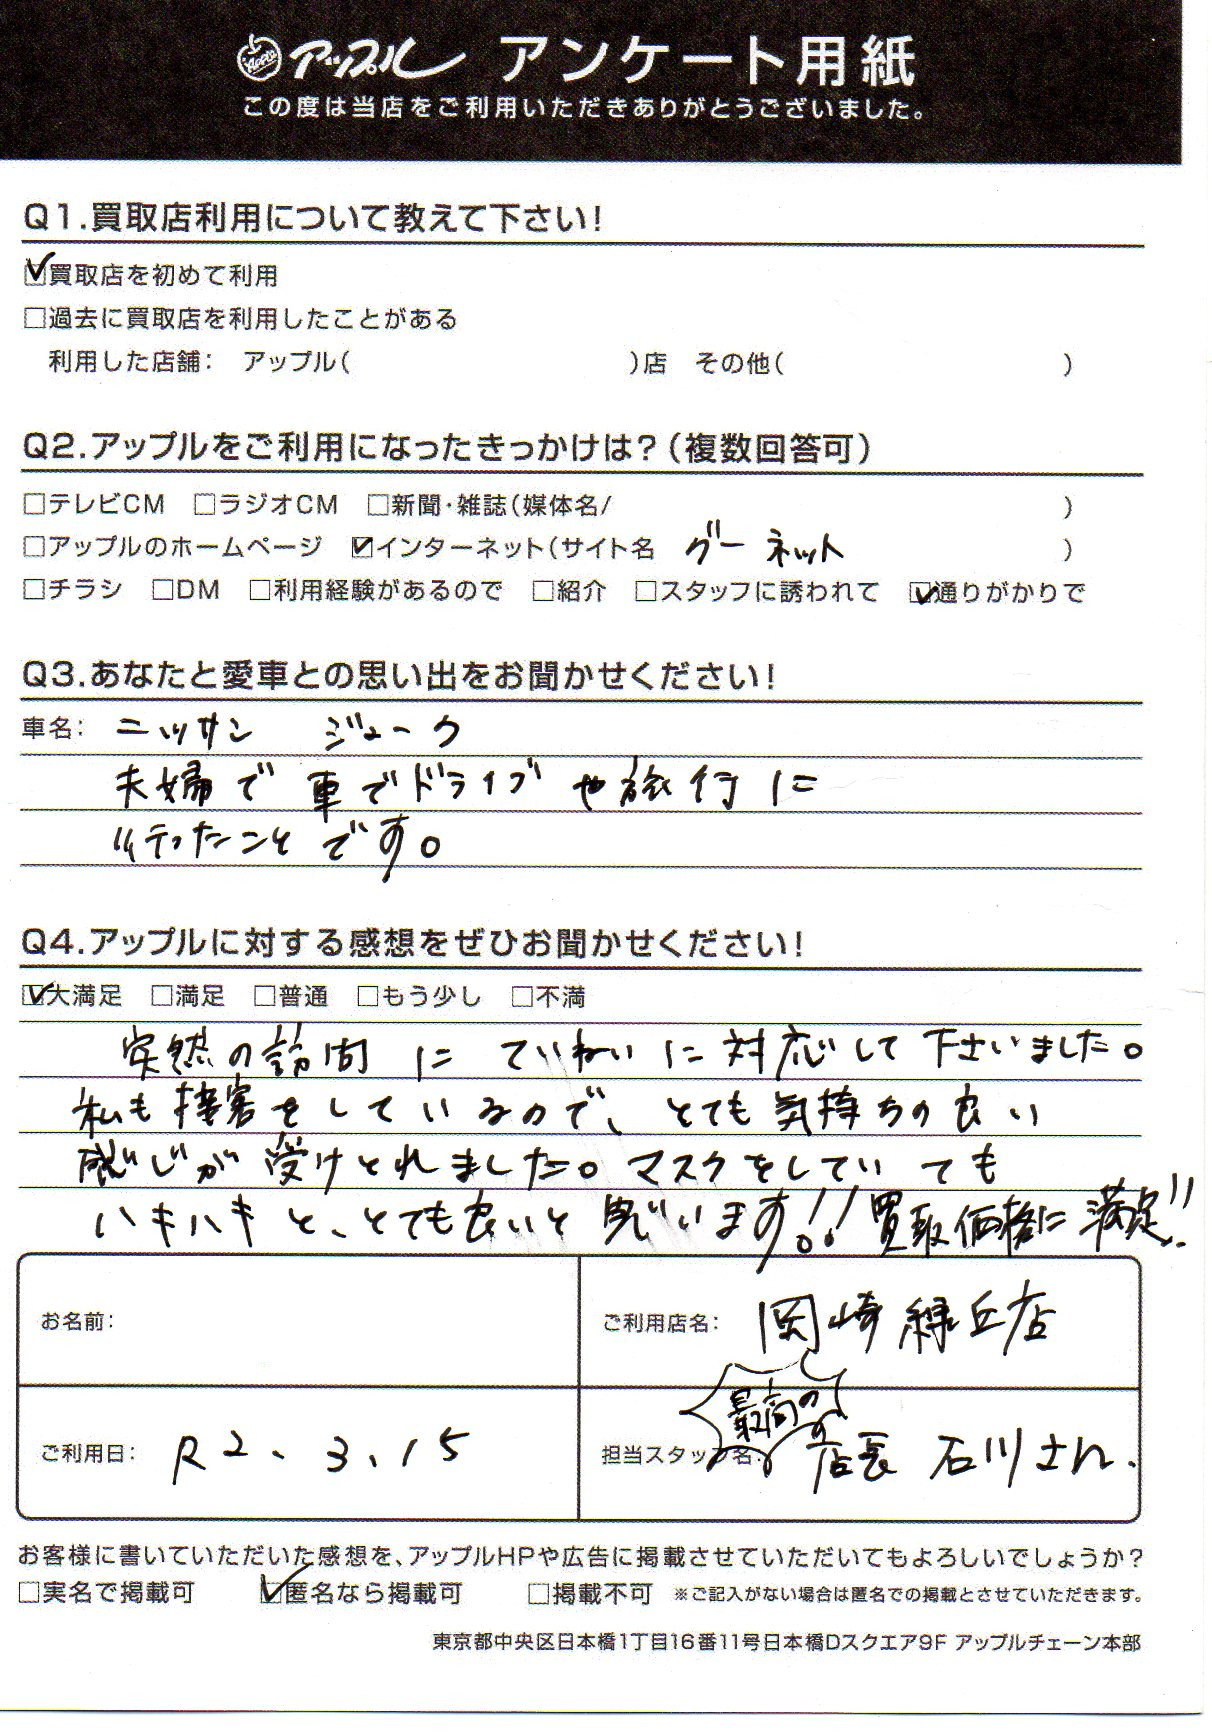 Apple アップル アンケート用紙
この度は当店をご利用いただきありがとうございました。
Q1.買取店利用について教えて下さい!
☑買取店を初めて利用
□過去に買取店を利用したことがある
利用した店舗: アップル( )店 その他( )
Q2.アップルをご利用になったきっかけは?(複数回答可)
□テレビCM □ラジオCM □新聞・雑誌(媒体名/ )
□アップルのホームページ ☑インターネット(サイト名 グーネット )
□チラシ □DM □利用経験があるので □紹介 □スタッフに誘われて ☑通りがかりで
Q3.あなたと愛車との思い出をお聞かせください!
車名: ニッサン ジューク
夫婦で車でドライブや旅行に
行ったことです。
Q4.アップルに対する感想をぜひお聞かせください!
☑大満足 □満足 □普通 □もう少し □不満
突然の訪問にていねいに対応して下さいました。
私も接客をしているので、とても気持ちの良い
感じが受けとれました。マスクをしていても
ハキハキと、とても良いと思います!! 買取価格に満足!!
お名前:
ご利用店名: 岡崎緑丘店
ご利用日: R2、3、15
担当スタッフ名: 最高の店長 石川さん.
お客様に書いていただいた感想を、アップルHPや広告に掲載させていただいてもよろしいでしょうか?
□実名で掲載可 ☑匿名なら掲載可 □掲載不可 ※ご記入がない場合は匿名での掲載とさせていただきます。
東京都中央区日本橋1丁目16番11号日本橋Dスクエア9F アップルチェーン本部